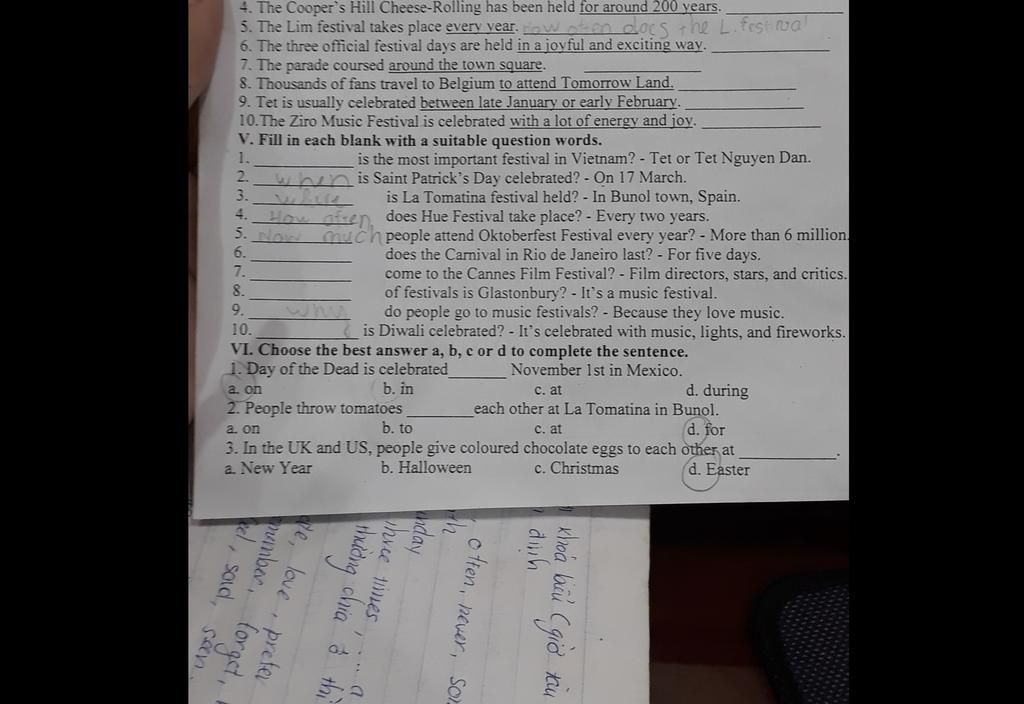 4. The Cooper's Hill Cheese-Rolling has been held for around 200 years. ____________
5. The Lim festival takes place every year. How often does the L. festival
6. The three official festival days are held in a joyful and exciting way. ____________
7. The parade coursed around the town square. ____________
8. Thousands of fans travel to Belgium to attend Tomorrow Land. ____________
9. Tet is usually celebrated between late January or early February. ____________
10.The Ziro Music Festival is celebrated with a lot of energy and joy. ____________
V. Fill in each blank with a suitable question words.
1. __________ is the most important festival in Vietnam? - Tet or Tet Nguyen Dan.
2. when is Saint Patrick's Day celebrated? - On 17 March.
3. where is La Tomatina festival held? - In Bunol town, Spain.
4. How often does Hue Festival take place? - Every two years.
5. How much people attend Oktoberfest Festival every year? - More than 6 million.
6. __________ does the Carnival in Rio de Janeiro last? - For five days.
7. __________ come to the Cannes Film Festival? - Film directors, stars, and critics.
8. __________ of festivals is Glastonbury? - It's a music festival.
9. why do people go to music festivals? - Because they love music.
10. __________ is Diwali celebrated? - It's celebrated with music, lights, and fireworks.
VI. Choose the best answer a, b, c or d to complete the sentence.
1. Day of the Dead is celebrated______ November 1st in Mexico.
a. on b. in c. at d. during
2. People throw tomatoes ______each other at La Tomatina in Bunol.
a. on b. to c. at d. for
3. In the UK and US, people give coloured chocolate eggs to each other at __________.
a. New Year b. Halloween c. Christmas d. Easter
khoá biểu (giờ tàu
định
, often, never,
nday
three times, .... a
thường chia ở thì
love, prefer
forget,
said, seen